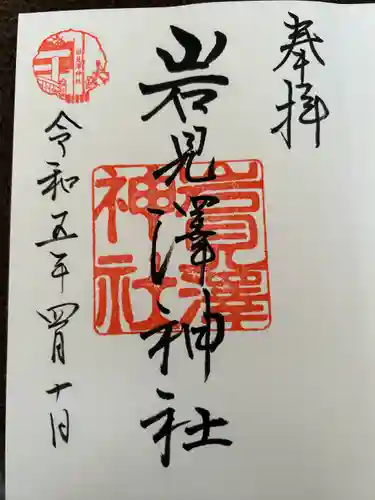 奉拝
岩見澤神社
岩見澤神社
令和五年四月十日